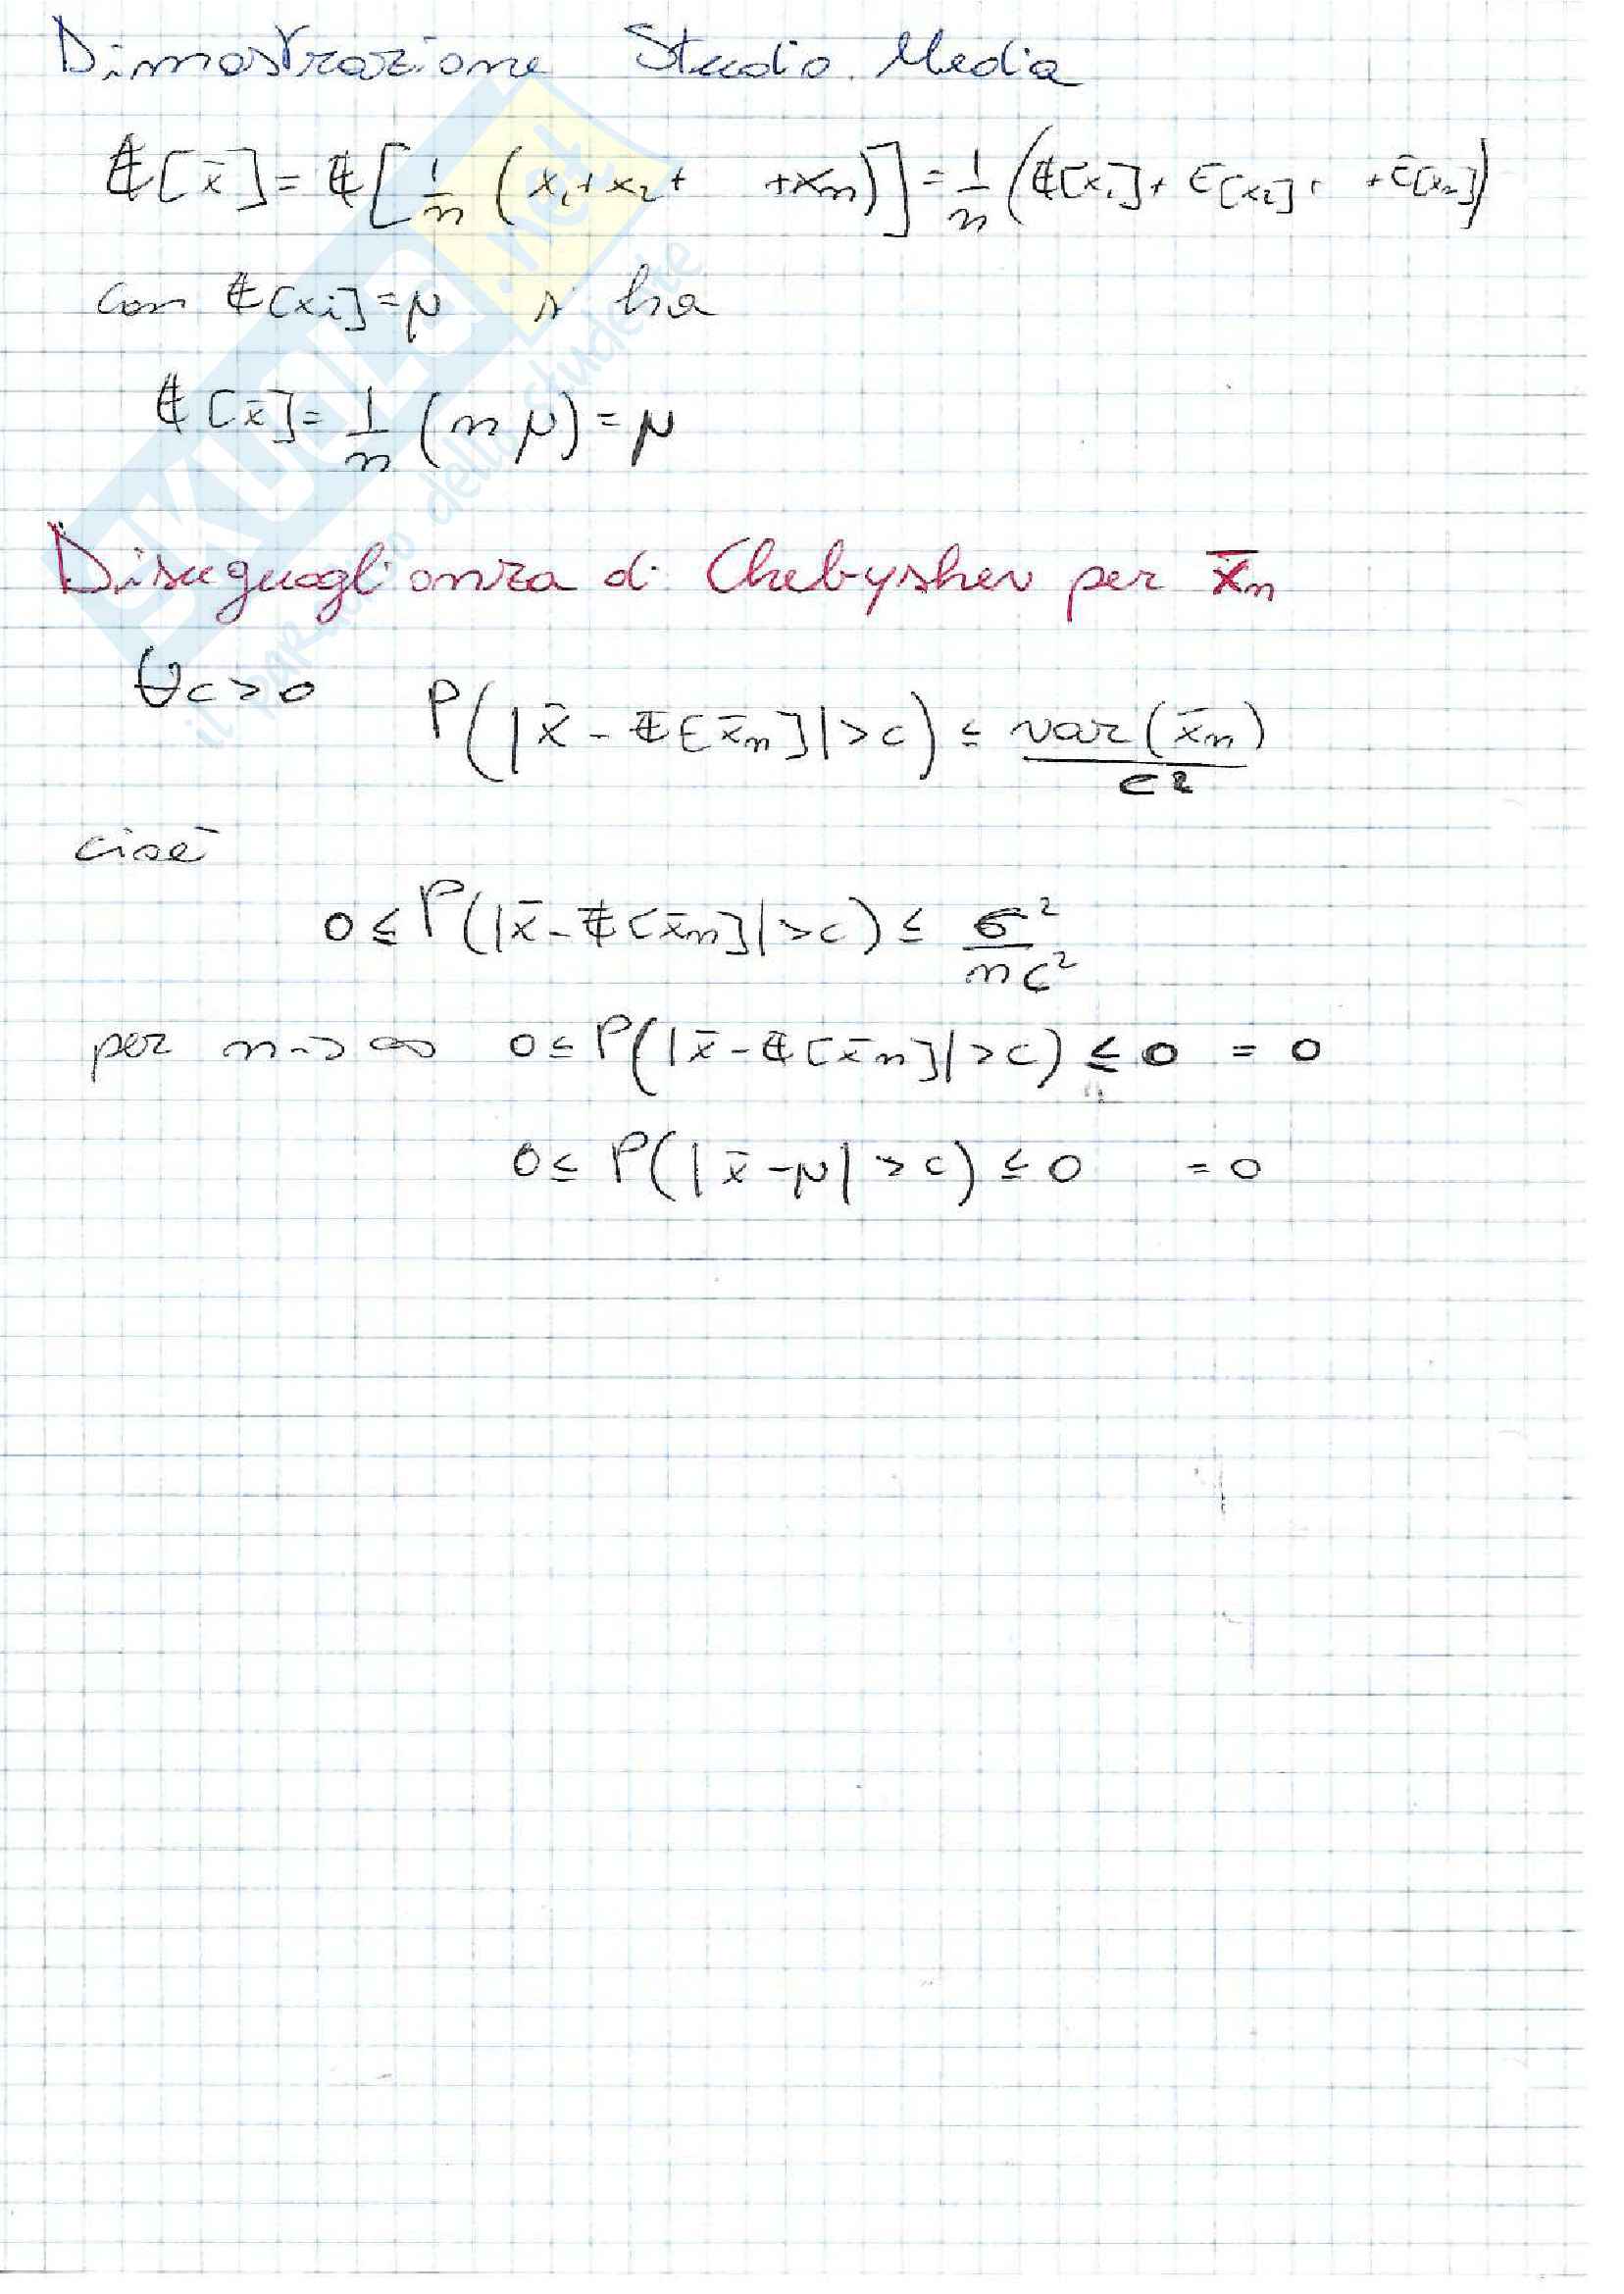 Dimostrazione Studio Media
E[x̄] = E[1/n (x₁+x₂+ +xₙ)] = 1/n (E[x₁]+ E[x₂]+ +E[xₙ])
con E[xi]=μ si ha
E[x̄] = 1/n (n μ) = μ
Disuguaglianza di Chebyshev per x̄ₙ
∀c>0 P(|x̄ - E[x̄ₙ]|>c) ≤ var(x̄ₙ)/c²
cioè
0 ≤ P(|x̄ - E[x̄ₙ]|>c) ≤ σ²/nc²
per n→∞ 0 ≤ P(|x̄ - E[x̄ₙ]|>c) ≤ 0 = 0
0 ≤ P(|x̄ - μ|>c) ≤ 0 = 0
SKUOLA.net
il paradiso dello studente